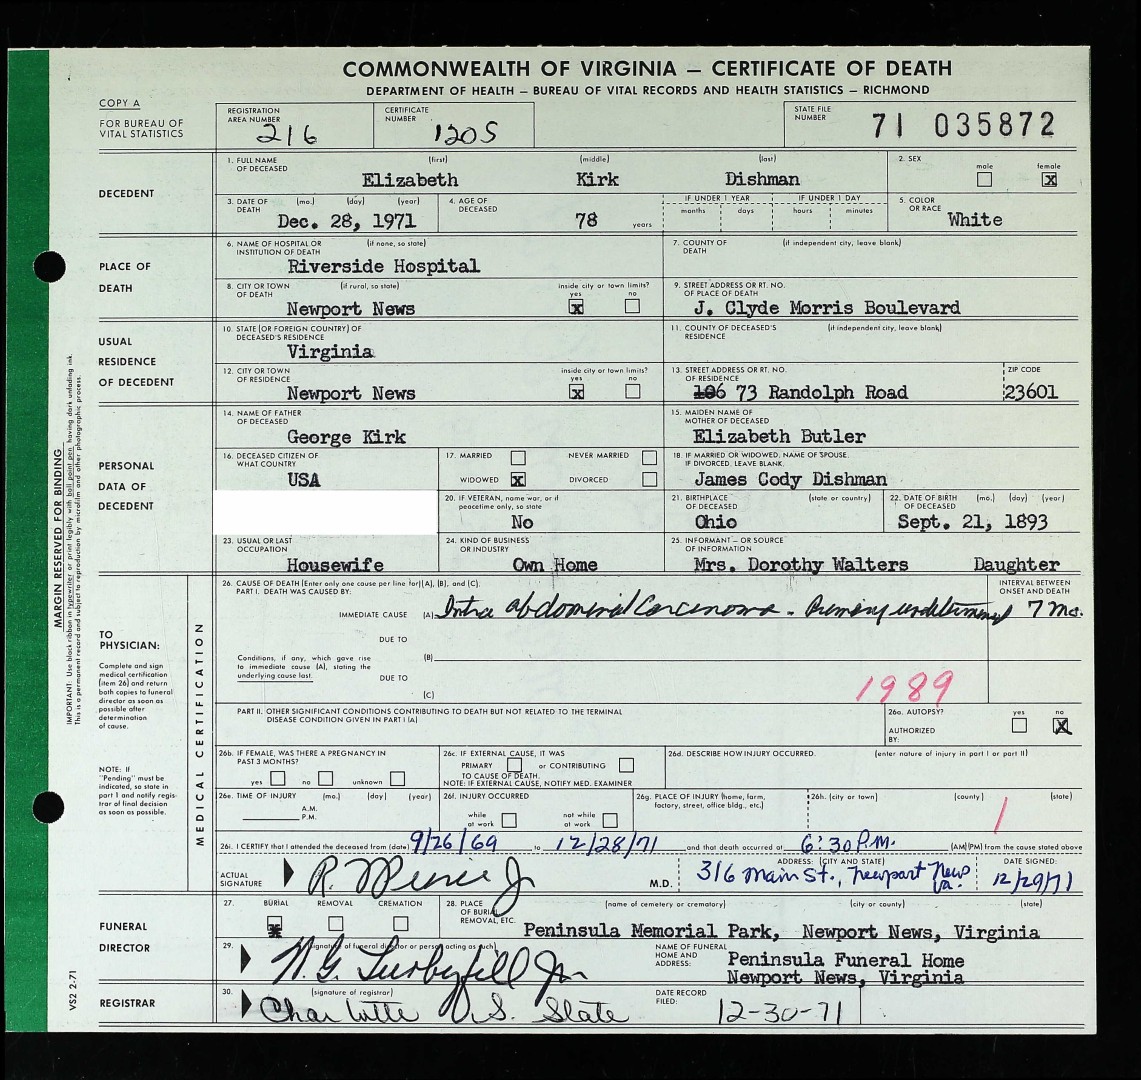 COMMONWEALTH OF VIRGINIA — CERTIFICATE OF DEATH
DEPARTMENT OF HEALTH — BUREAU OF VITAL RECORDS AND HEALTH STATISTICS — RICHMOND
COPY A
FOR BUREAU OF
VITAL STATISTICS
REGISTRATION
AREA NUMBER
216
CERTIFICATE
NUMBER
1205
STATE FILE
NUMBER
71 035872
DECEDENT
1. FULL NAME
OF DECEASED
(first) (middle) (last)
Elizabeth Kirk Dishman
2. SEX
male female
x
3. DATE OF
DEATH
(mo.) (day) (year)
Dec. 28, 1971
4. AGE OF
DECEASED
78 years
IF UNDER 1 YEAR
months days
IF UNDER 1 DAY
hours minutes
5. COLOR
OR RACE
White
PLACE OF
DEATH
6. NAME OF HOSPITAL OR (if none, so state)
INSTITUTION OF DEATH
Riverside Hospital
7. COUNTY OF (if independent city, leave blank)
DEATH
8. CITY OR TOWN (if rural, so state)
OF DEATH
Newport News
inside city or town limits?
yes no
x
9. STREET ADDRESS OR RT. NO.
OF PLACE OF DEATH
J. Clyde Morris Boulevard
USUAL
RESIDENCE
OF DECEDENT
10. STATE (OR FOREIGN COUNTRY) OF
DECEASED'S RESIDENCE
Virginia
11. COUNTY OF DECEASED'S (if independent city, leave blank)
RESIDENCE
12. CITY OR TOWN
OF RESIDENCE
Newport News
inside city or town limits?
yes no
x
13. STREET ADDRESS OR RT. NO.
OF RESIDENCE
73 Randolph Road
ZIP CODE
23601
PERSONAL
DATA OF
DECEDENT
14. NAME OF FATHER
OF DECEASED
George Kirk
15. MAIDEN NAME OF
MOTHER OF DECEASED
Elizabeth Butler
16. DECEASED CITIZEN OF
WHAT COUNTRY
USA
17. MARRIED NEVER MARRIED
WIDOWED x DIVORCED
18. IF MARRIED OR WIDOWED, NAME OF SPOUSE.
IF DIVORCED, LEAVE BLANK.
James Cody Dishman
20. IF VETERAN, name war, or if
peacetime only, so state
No
21. BIRTHPLACE (state or country)
OF DECEASED
Ohio
22. DATE OF BIRTH (mo.) (day) (year)
OF DECEASED
Sept. 21, 1893
23. USUAL OR LAST
OCCUPATION
Housewife
24. KIND OF BUSINESS
OR INDUSTRY
Own Home
25. INFORMANT — OR SOURCE
OF INFORMATION
Mrs. Dorothy Walters Daughter
TO
PHYSICIAN:
Complete and sign
medical certification
(item 26) and return
both copies to funeral
director as soon as
possible after
determination
of cause.
NOTE: If
"Pending" must be
indicated, so state in
part 1 and notify regis-
trar of final decision
as soon as possible.
MEDICAL CERTIFICATION
26. CAUSE OF DEATH (Enter only one cause per line for (A), (B), and (C).
PART I. DEATH WAS CAUSED BY:
INTERVAL BETWEEN
ONSET AND DEATH
IMMEDIATE CAUSE (A) Intra abdominal Carcinoma - Primary undetermined 7 Mo.
DUE TO
Conditions, if any, which gave rise
to immediate cause (A), stating the
underlying cause last.
(B)
DUE TO
(C)
1989
PART II. OTHER SIGNIFICANT CONDITIONS CONTRIBUTING TO DEATH BUT NOT RELATED TO THE TERMINAL
DISEASE CONDITION GIVEN IN PART I (A)
26a. AUTOPSY? yes no
AUTHORIZED
BY:
X
26b. IF FEMALE, WAS THERE A PREGNANCY IN
PAST 3 MONTHS?
yes no unknown
26c. IF EXTERNAL CAUSE, IT WAS
PRIMARY or CONTRIBUTING
TO CAUSE OF DEATH.
NOTE: IF EXTERNAL CAUSE, NOTIFY MED. EXAMINER
26d. DESCRIBE HOW INJURY OCCURRED. (enter nature of injury in part I or part II)
26e. TIME OF INJURY (mo.) (day) (year)
A.M.
P.M.
26f. INJURY OCCURRED
while
at work
not while
at work
26g. PLACE OF INJURY (home, farm,
factory, street, office bldg., etc.)
26h. (city or town) (county) (state)
1
26i. I CERTIFY that I attended the deceased from (date) 9/26/69 to 12/28/71 and that death occurred at 6:30 P.M. (AM)(PM) from the cause stated above
ACTUAL
SIGNATURE
M.D.
ADDRESS: (CITY AND STATE)
316 Main St., Newport News Va.
DATE SIGNED:
12/29/71
FUNERAL
DIRECTOR
27. BURIAL REMOVAL CREMATION
x
28. PLACE
OF BURIAL
REMOVAL, ETC.
(name of cemetery or crematory) (city or county) (state)
Peninsula Memorial Park, Newport News, Virginia
29. (signature of funeral director or person acting as such)
NAME OF FUNERAL
HOME AND
ADDRESS:
Peninsula Funeral Home
Newport News, Virginia
REGISTRAR
30. (signature of registrar)
Charlotte S. Slate
DATE RECORD
FILED:
12-30-71
MARGIN RESERVED FOR BINDING
IMPORTANT: Use black ribbon in typewriter or print legibly with ball point pen having dark unfading ink.
This is a permanent record and subject to reproduction by microfilm and other photographic process.
VS2 2-71